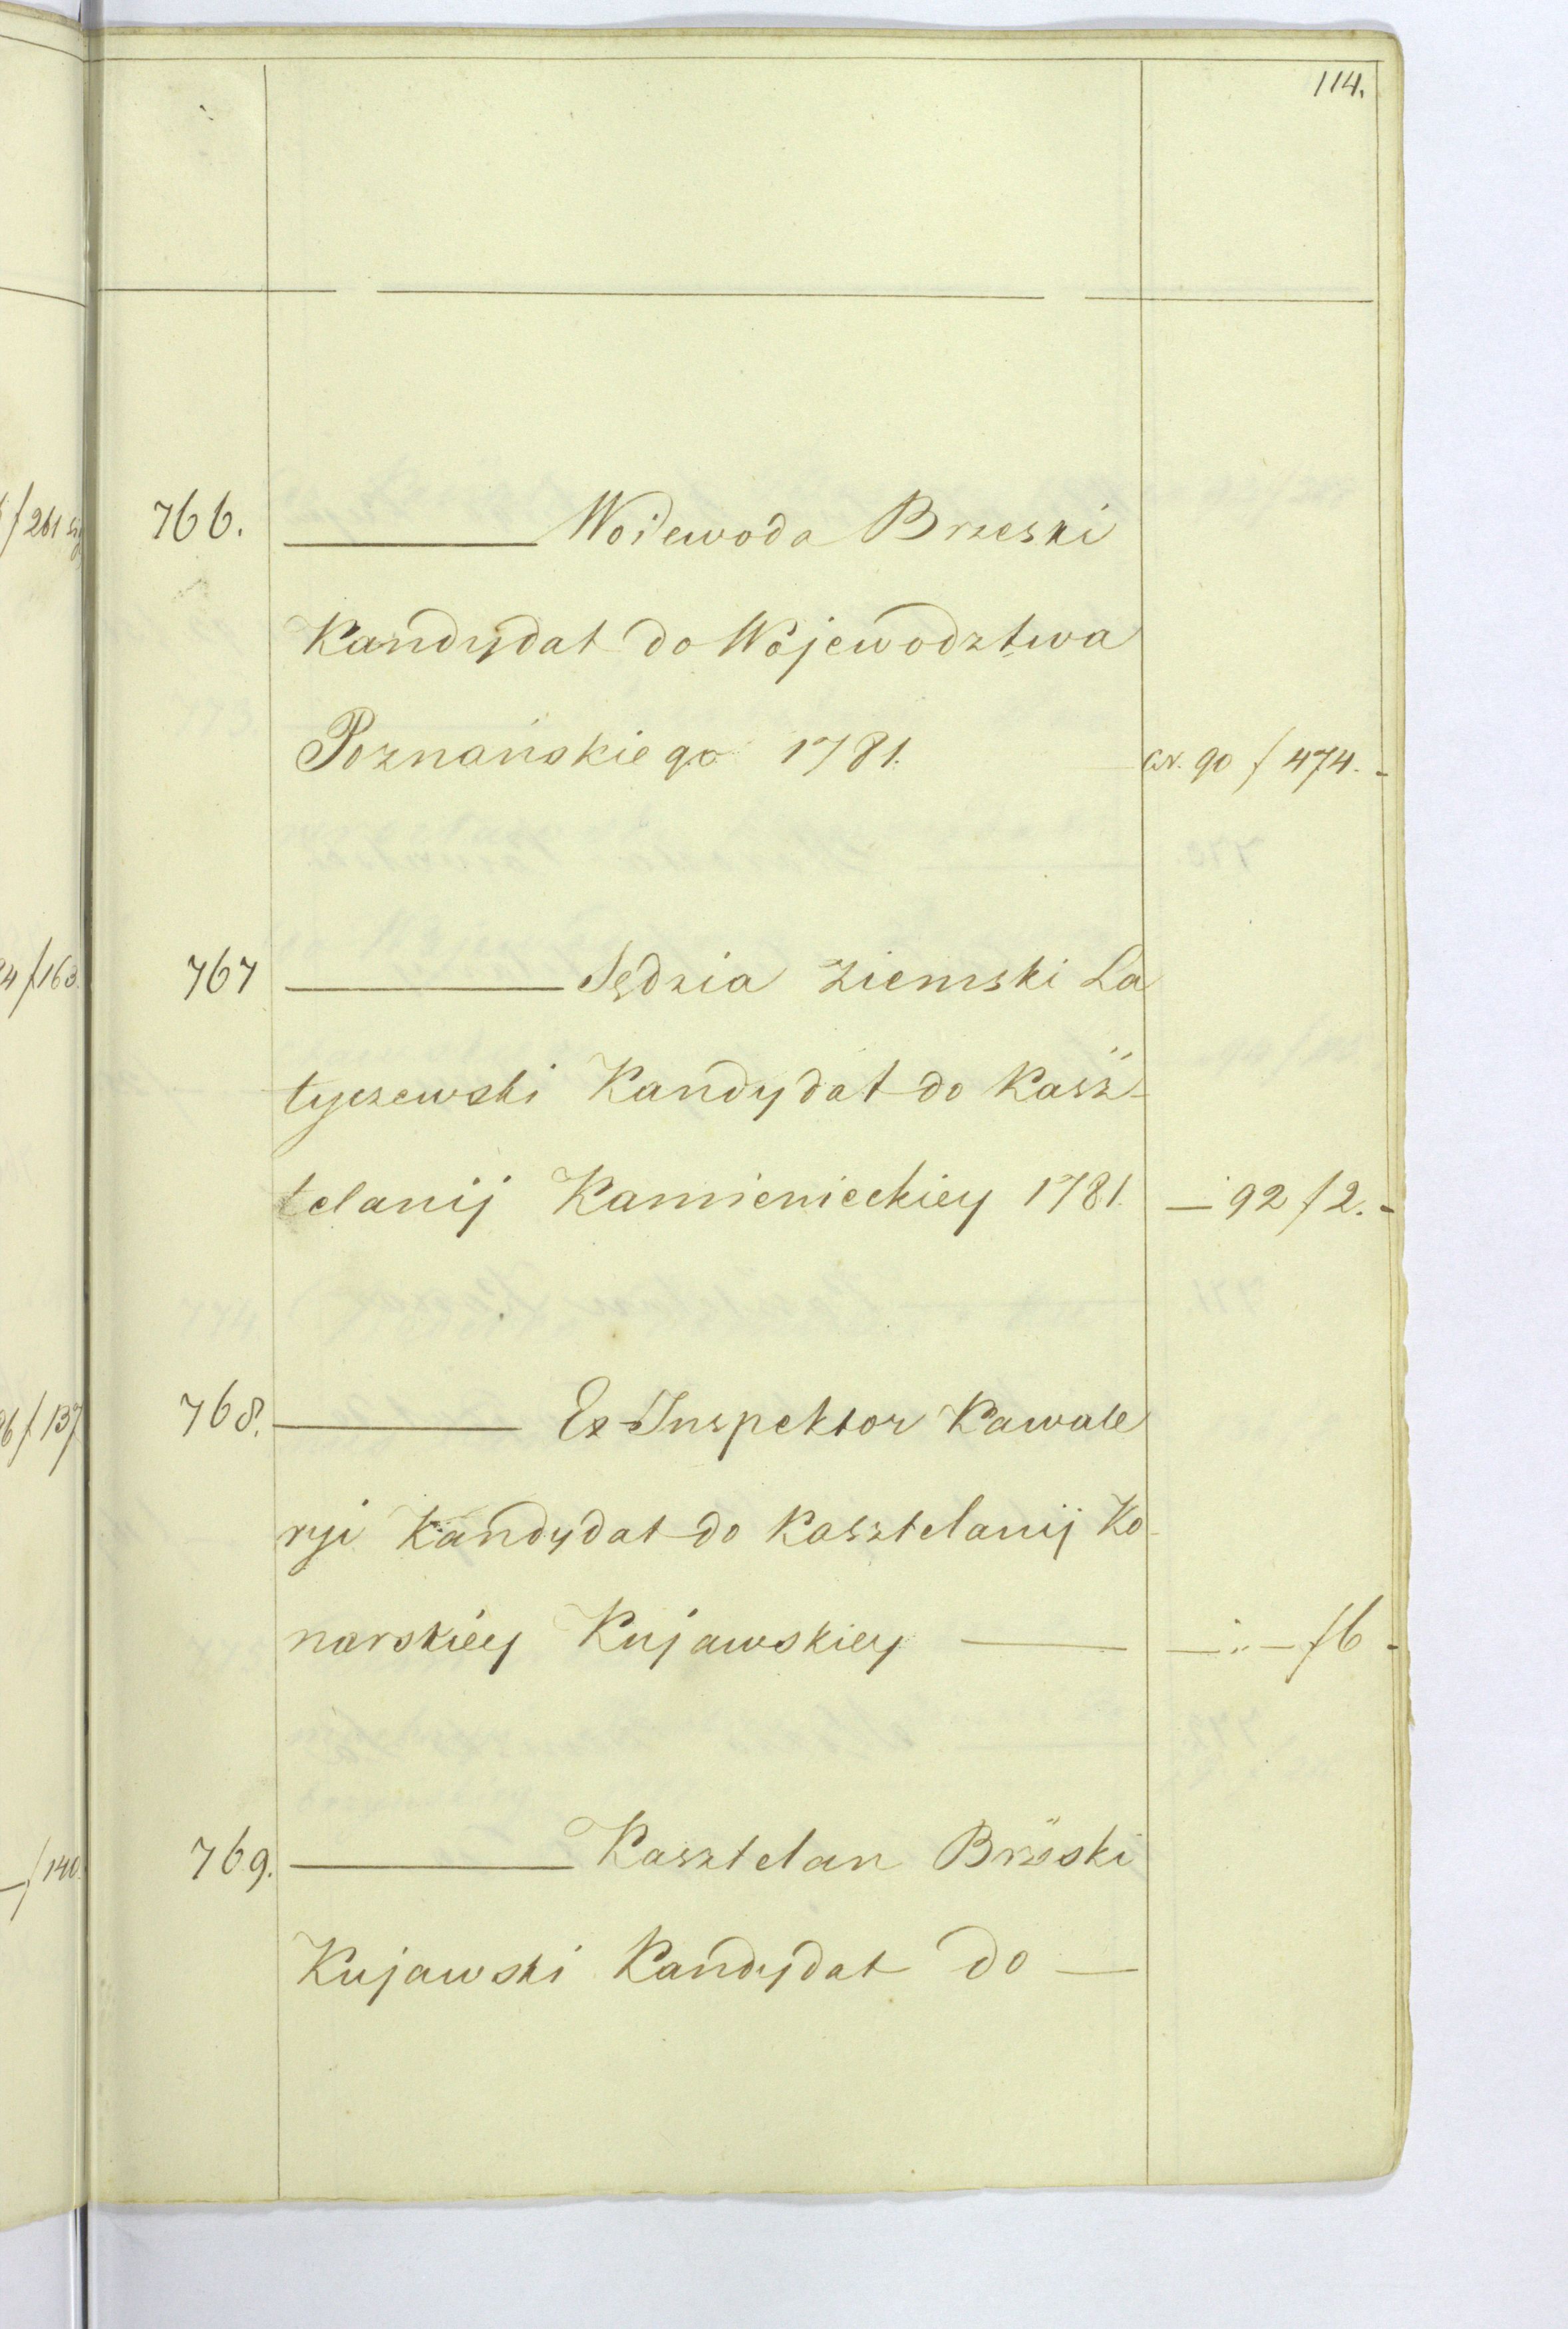 114.
766. ——— Woiewoda Brzeski
Kandydat do Województwa
Poznańskiego 1781. 90 f 474. -
767 ——— Sędzia Ziemski La
tyczewski Kandydat do Kasz-
telanij Kamienieckiey 1781. — 92 f 2. -
768. ——— Ex-Inspektor Kawale
ryi Kandydat do Kasztelanij Ko-
narskiéy Kujawskiey ——— — „ — f 6 -
769. ——— Kasztelan
Kujawski Kandydat do —